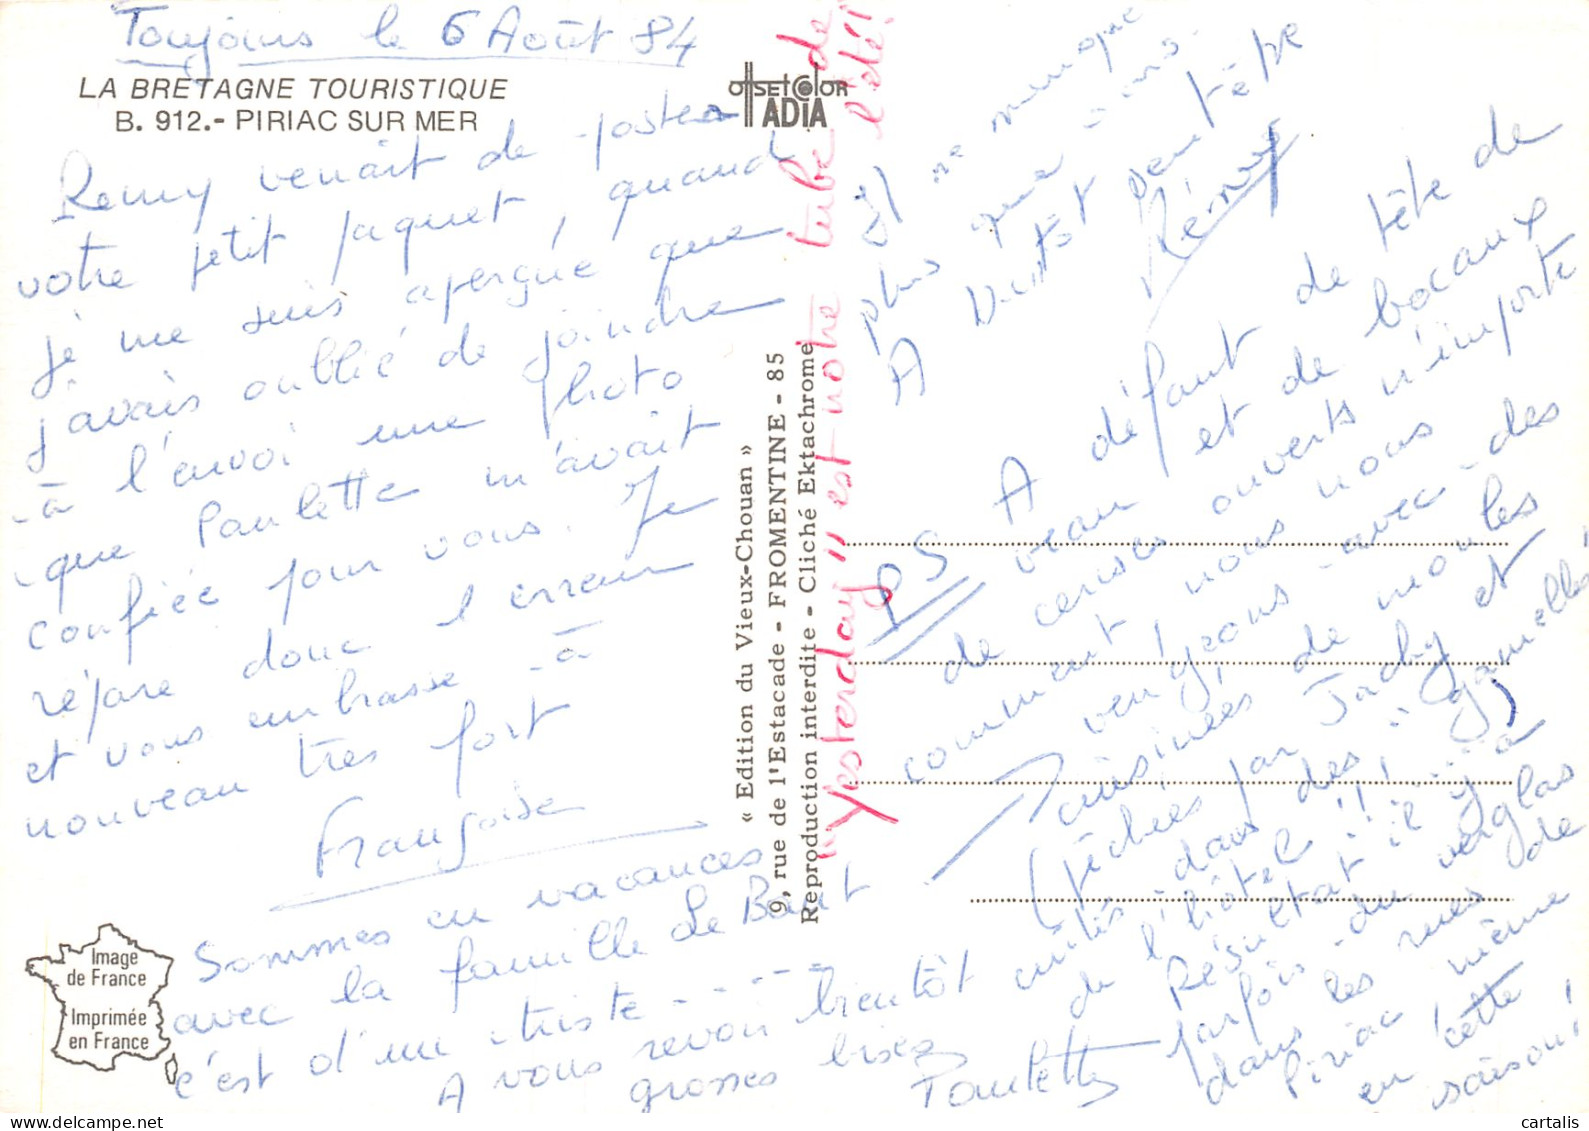 Toujours le 6 Août 84
LA BRETAGNE TOURISTIQUE
B. 912.- PIRIAC SUR MER
Remy venait de poster
votre petit paquet, quand
je me suis aperçue que
j'avais oublié de joindre
-à l'envoi une photo
que Paulette m'avait
confiée pour vous. Je
répare donc l'erreur
et vous embrasse -à
nouveau très fort
Françoise
Sommes en vacances
avec la famille Le Baut
c'est d'un triste - - - - -
A vous revoir bientôt
grosses bises
Paulette
Image
de France
Imprimée
en France
OffsetColor
ADIA
« Edition du Vieux-Chouan »
9, rue de l'Estacade - FROMENTINE - 85
Reproduction interdite - Cliché Ektachrome
"Yesterday" est notre tube de l'été!
Il ne manque
plus que - ans.
A bientôt peut être
Rémy
PS A défaut de tête de
veau et de bocaux
de cerises ouverts n'importe
comment, nous nous
vengeons - avec - des
cuisinées de moules
(pêchées par Jacky et
cuites - dans des "gamelles"
de l'hôtel !! )
Résultat : il y a
parfois - du verglas
dans les rues de
Piriac, même
en cette
saison!